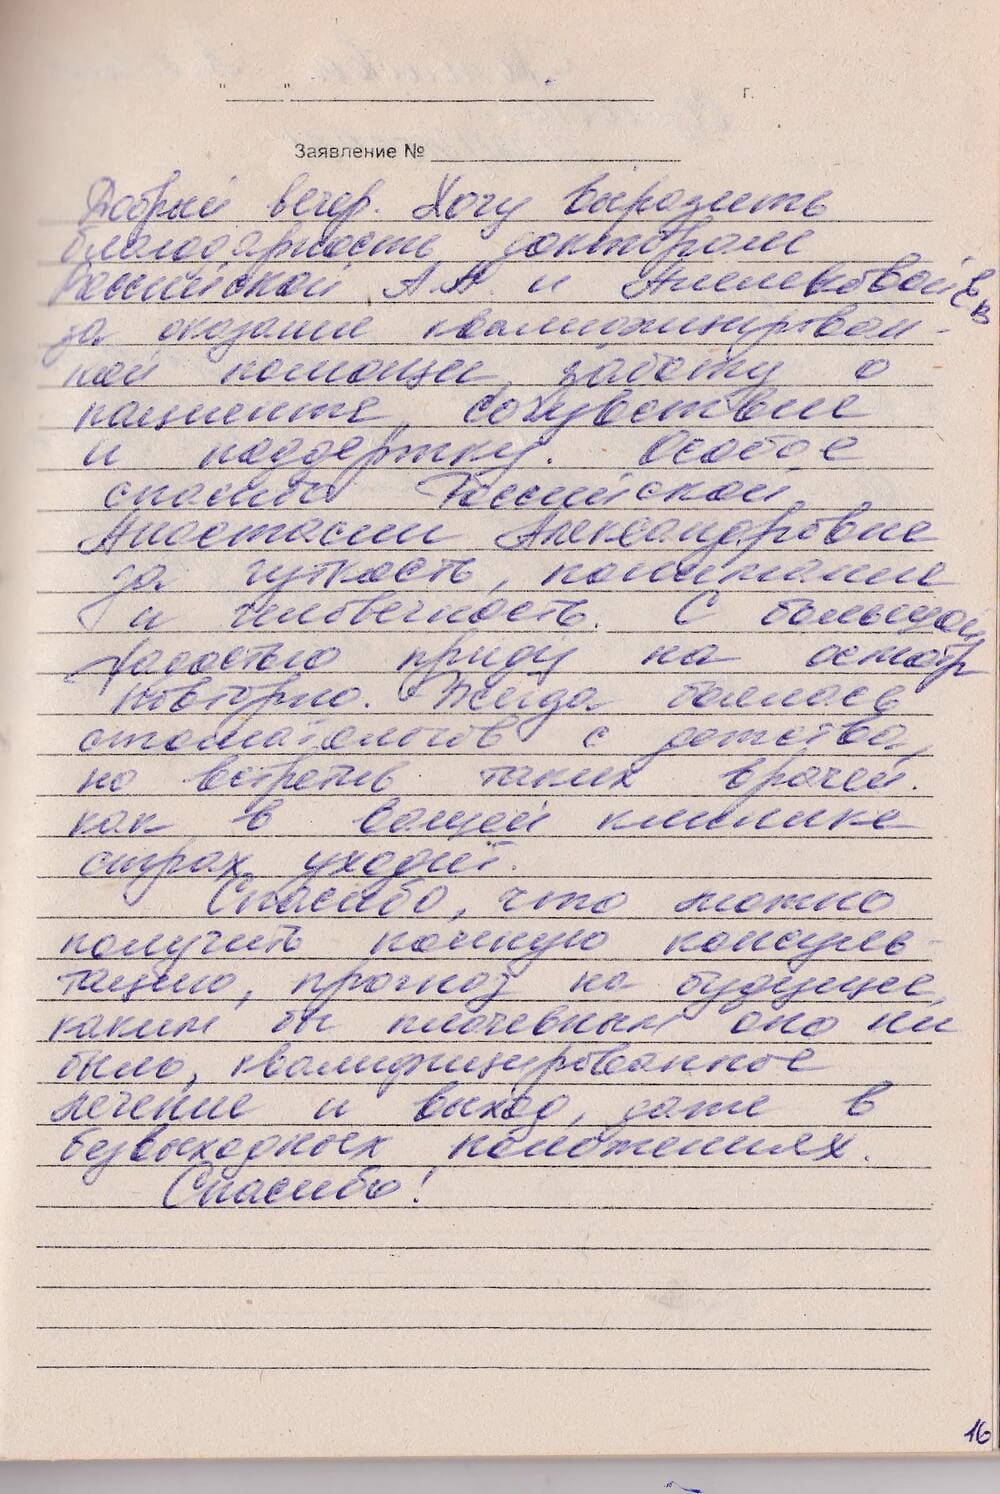 " " г.
Заявление №
Добрый вечер. Хочу выразить
благодарность докторам
Российской А.А. и Ев
за оказание квалифицирован-
ной помощи, заботу о
пациенте, сочувствие
и поддержку. Особое
спасибо Российской
Анастасии Александровне
за чуткость, понимание
и человечность. С большой
радостью приду на осмотр
повторно. Всегда боялась
стоматологов с детства,
но встретив таких врачей.
как в вашей клинике
страх уходит.
Спасибо, что можно
получить полную консуль-
тацию, прогноз на будущее,
каким бы плачевным оно ни
было, квалифицированное
лечение и выход, даже в
безвыходных положениях.
Спасибо!
16